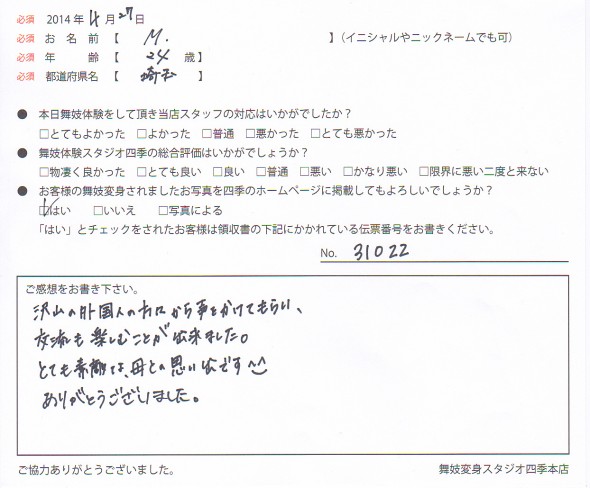 必須 2014年 4月 27日
必須 お 名 前 【 M. 】(イニシャルやニックネームでも可)
必須 年 齢 【 24 歳】
必須 都道府県名 【 埼玉 】
● 本日舞妓体験をして頂き当店スタッフの対応はいかがでしたか?
□とてもよかった □よかった □普通 □悪かった □とても悪かった
● 舞妓体験スタジオ四季の総合評価はいかがでしょうか?
□物凄く良かった □とても良い □良い □普通 □悪い □かなり悪い □限界に悪い二度と来ない
● お客様の舞妓変身されましたお写真を四季のホームページに掲載してもよろしいでしょうか?
☑はい □いいえ □写真による
「はい」とチェックをされたお客様は領収書の下記にかかれている伝票番号をお書きください。
No. 31022
ご感想をお書き下さい。
沢山の外国人の方々から声をかけてもらい、
交流も楽しむことが出来ました。
とても素敵な、母との思い出です^^
ありがとうございました。
ご協力ありがとうございました。 舞妓変身スタジオ四季本店